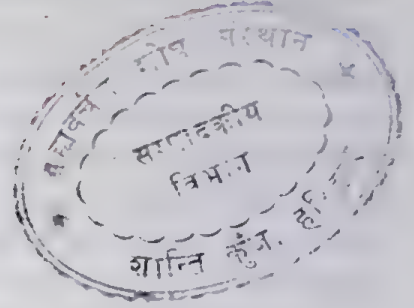 ब्रह्मवर्चस शोध संस्थान
सम्पादकीय
विभाग
शान्ति कुंज.